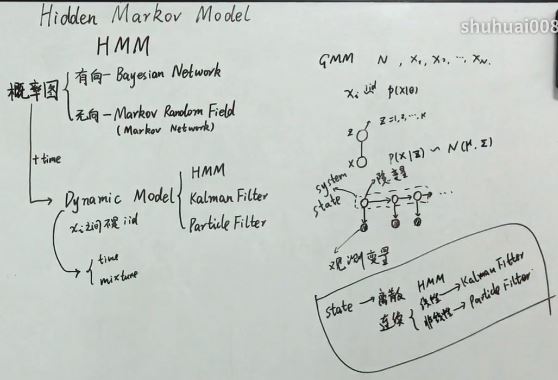 Hidden Markov Model
HMM
shuhuai008
概率图
有向—Bayesian Network
无向—Markov Random Field
(Markov Network)
+time
Dynamic Model
HMM
Kalman Filter
Particle Filter
xᵢ之间不是iid
time
mixture
GMM N, x₁, x₂, ⋯, x_N.
xᵢ iid p(x|θ)
z z=1,2,⋯,K
x p(X|Z) ~ N(μ, Σ)
system state
隐变量
⋯
观测变量
state → 离散 HMM
连续
线性 → Kalman Filter
非线性 → Particle Filter